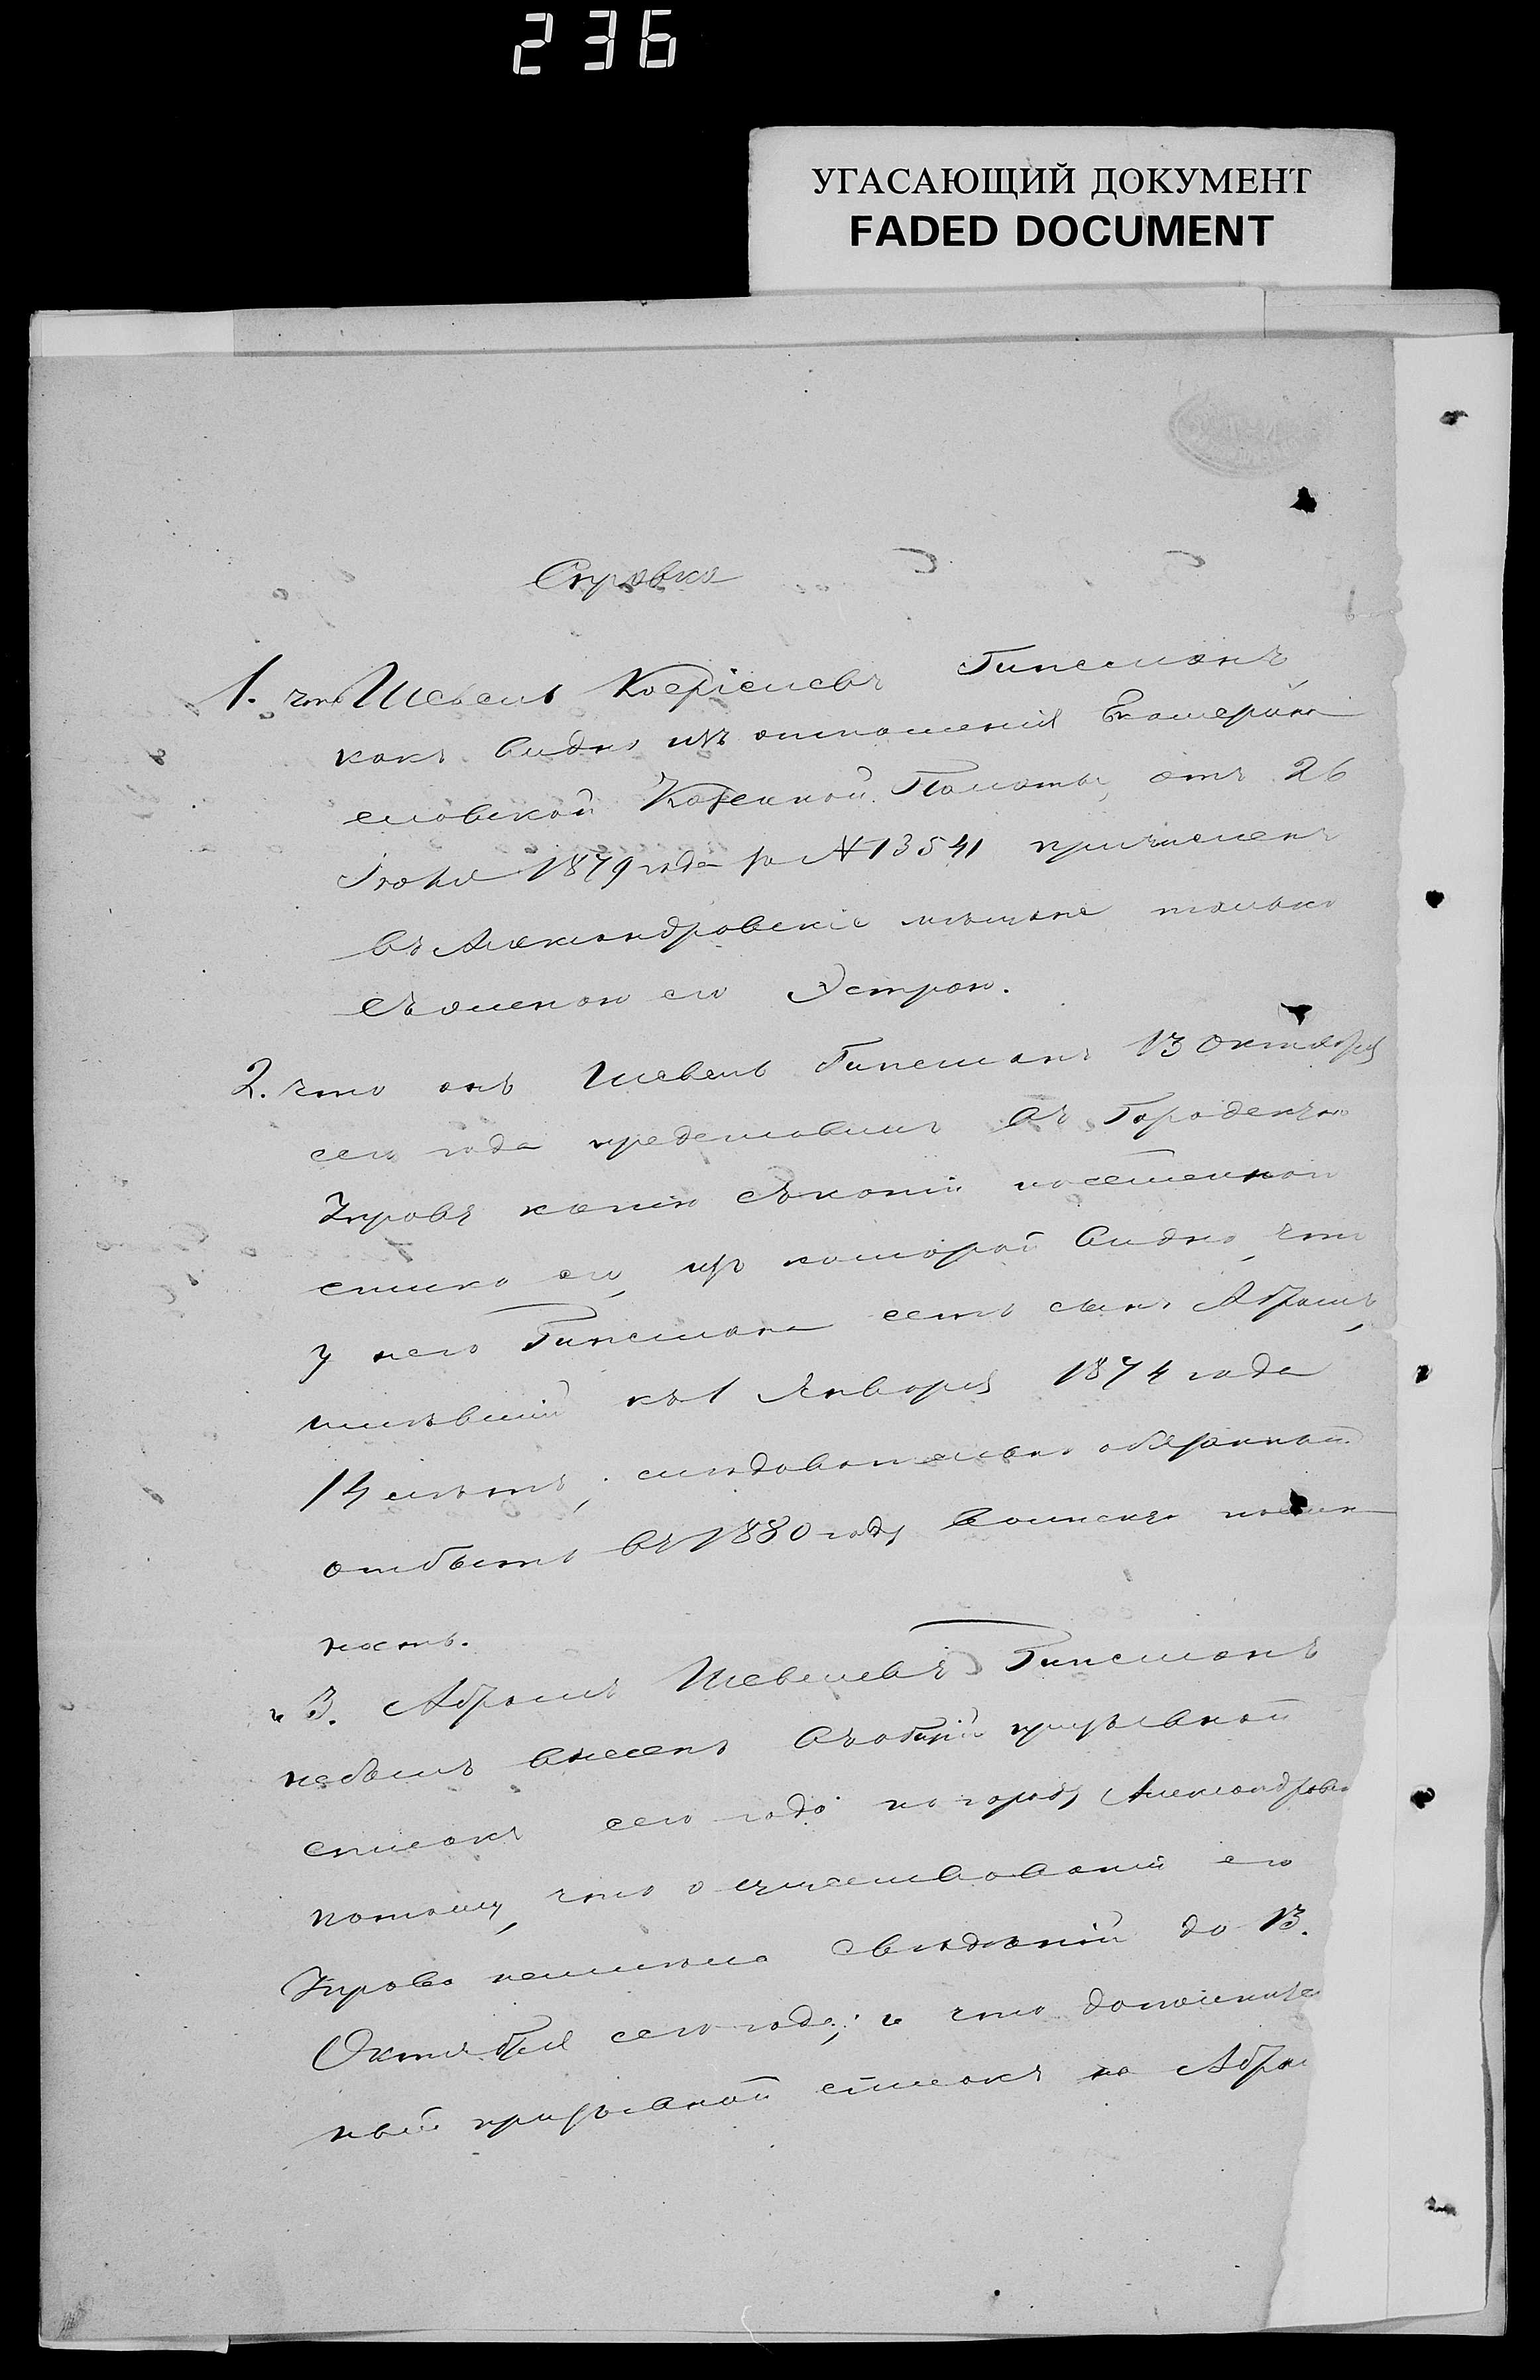 236
УГАСАЮЩИЙ ДОКУМЕНТ
FADED DOCUMENT
Справка
1. что Шевель Гипсманъ,
какъ видно изъ отношенія Екатерино
славской Казенной Палаты, отъ 26
Іюля 1879 года за №13541 причисленъ
въ Александровскіе мѣщане только
съ женою его Эстрою.
2. что онъ Шевель Гипсманъ 13 Октября
сего года представилъ въ Городскую
Управу копію съ копіи посемейнаго
списка его, изъ которой видно, что
у него Гипсмана есть сынъ Абрамъ,
имѣвшій къ 1 Января 1874 года
14 лѣтъ, слѣдовательно обязанный
отбыть въ 1880 году воинскую повин
ность.
и 3. Абрамъ Шевелевъ Гипсманъ
небылъ внесенъ въ общій призывной
списокъ сего года по городу Александровс
потому, что о существованіи его
Управа неимѣла свѣдѣній до 13.
Октября сего года; и что дополнител
ный призывной списокъ на Абра